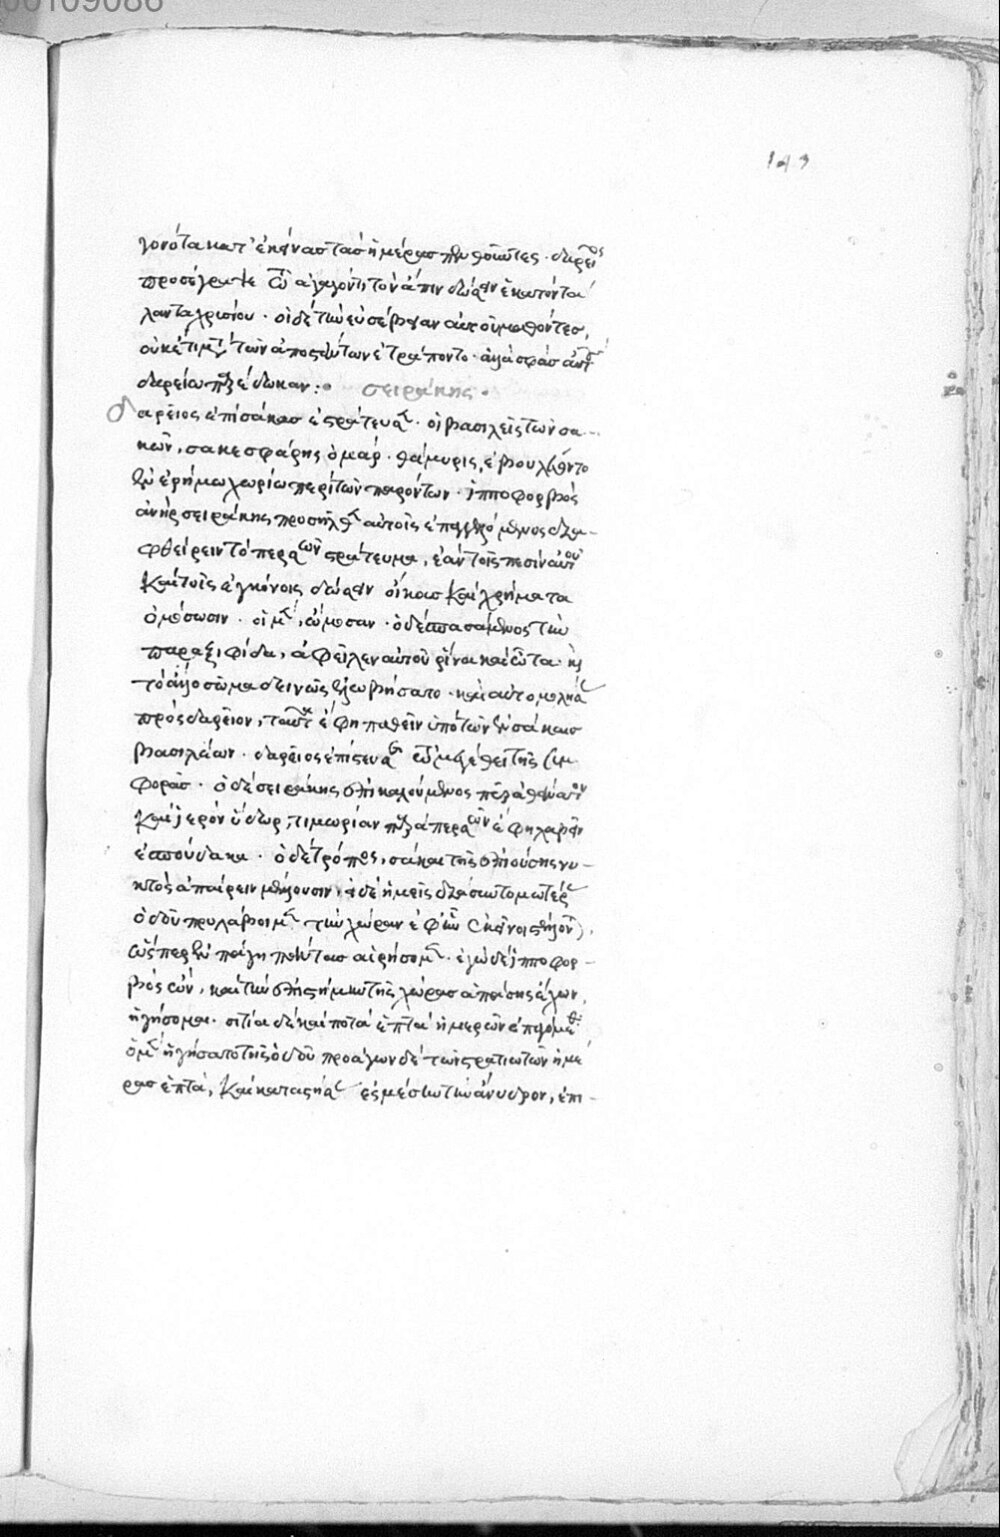 00109086
143
γονότα κατ' ἐκείνας τὰς ἡμέρας πενθοῦντες. δαρεῖος
προσέγραψε τῶ ἀγαγόντι τὸν ἄπιν δώσειν ἑκατὸν τά
λαντα χρυσίου. οἱ δὲ τὴν εὐσέβειαν αὐτοῦ μαθόντες,
οὐκέτι μετὰ τῶν ἀποστάντων ἐτράποντο. ἀλλὰ σφᾶς αὐτοὺς
δαρείω παρέδωκαν :· σειράκης.
δαρεῖος ἐπὶ σάκας ἐστράτευσε. οἱ βασιλεῖς τῶν σα-
κῶν, σακεσφάρης ὁμάρ. θάμυρις, ἐβουλεύοντο
ἐν ἐρήμω χωρίω περὶ τῶν παρόντων. ἱπποφορβὸς
ἀνὴρ σειράκης προσῆλθεν αὐτοῖς ἐπαγγελλόμενος δια-
φθείρειν τὸ περσῶν στράτευμα, ἐὰν τοῖς πεσὶν αὐτοῦ
καὶ τοῖς ἐγγόνοις δώσειν οἴκους καὶ χρήματα
ὀμόσωσιν. οἱ μὲν, ὤμοσαν. ὁ δὲ σπασάμενος τὴν
παραξιφίδα, ἀφεῖλεν αὑτοῦ ῥῖνα καὶ ὦτα. καὶ
τὸ ἄλλο σῶμα δεινῶς ἐλωβήσατο. καὶ αὐτομολήσας
πρὸς δαρεῖον, ταῦτα ἔφη παθεῖν ὑπὸ τῶν ἐν σάκαις
βασιλέων. δαρεῖος ἐπίστευσεν τῶ μεγέθει τῆς συμ
φορᾶς. ὁ δὲ σειράκης ἐπικαλούμενος πῦρ ἀθάνατον
καὶ ἱερὸν ὕδωρ, τιμωρίαν παρὰ περσῶν ἔφη λαβεῖν
ἐσπούδακα. ὁ δὲ τρόπος, σάκαι τῆς ἐπιούσης νυ-
κτὸς ἀπαίρειν μέλλουσιν, εἰ δὲ ἡμεῖς διὰ συντομωτέρας
ὁδοῦ προλάβοιμεν τὴν χώραν ἐφ' ἣν ἐκεῖνοι στέλλονται,
ὥσπερ ἐν πάγη πάντας αἱρήσομεν. ἐγὼ δὲ ἱπποφορ-
βὸς ὢν, καὶ τὴν ἐπιστήμην τῆς χώρας ἁπάσης ἔχων,
ἡγήσομαι. σιτία δὲ καὶ ποτὰ ἑπτὰ ἡμερῶν ἐπαγώμεθα.
ὁ μὲν ἡγήσατο τῆς ὁδοῦ προάγων δὲ τῶν στρατιωτῶν ἡμέ
ρας ἑπτὰ, καὶ καταστήσας ἐς μέσην τὴν ἄνυδρον, ἐπι-